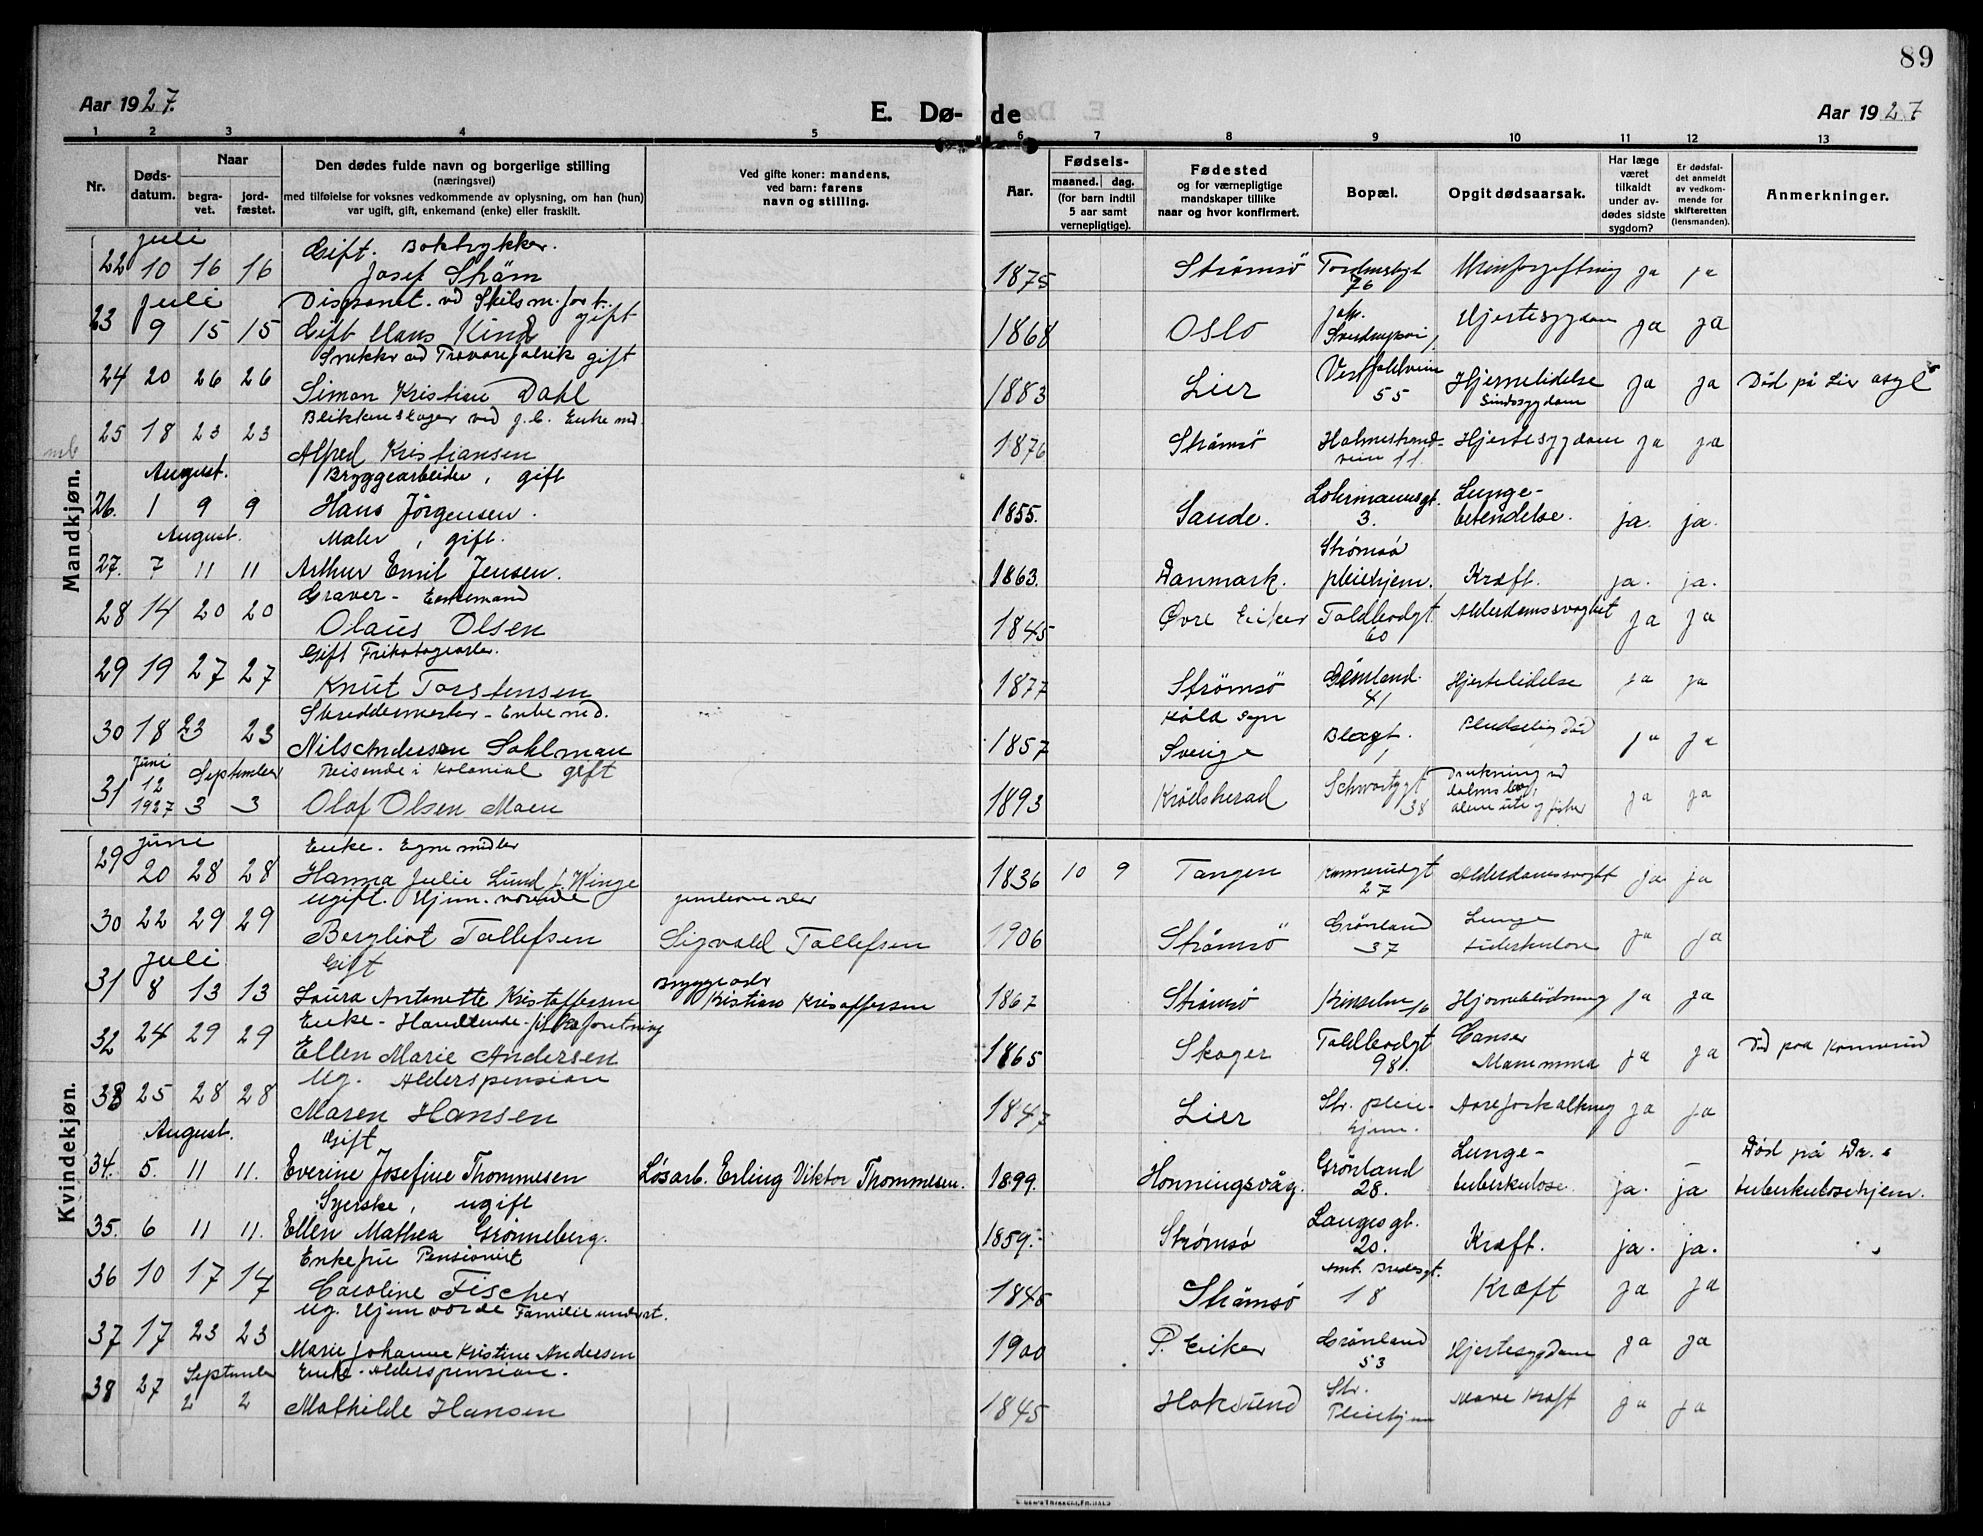 89
Aar 1927.
E. Dø-
de
Aar 1927
1 2 3 4 5 6 7 8 9 10 11 12 13
Nr.
Døds-
datum.
Naar
begra-
vet.
jord-
fæstet.
Den dødes fulde navn og borgerlige stilling
(næringsvei)
med tilføielse for voksnes vedkommende av oplysning, om han (hun)
var ugift, gift, enkemand (enke) eller fraskilt.
Ved gifte koner: mandens,
ved barn: farens
navn og stilling.
Aar.
Fødsels-
maaned. dag.
(for barn indtil
5 aar samt
vernepligtige).
Fødested
og for værnepligtige
mandskaper tillike
naar og hvor konfirmert.
Bopæl.
Opgit dødsaarsak.
Har læge
været
tilkaldt
under av-
dødes sidste
sygdom?
Er dødsfal-
det anmeldt
av vedkom-
mende for
skifteretten
(lensmanden).
Anmerkninger.
Mandkjøn.
juli Gift. Boktrykker.
22 10 16 16 Josef Strøm 1875 Strømsö 76 ja ja
juli Disponent. gift
23 9 15 15 Gift Hans Kind 1868 Oslo Hjertesygdom ja ja
Trevarefabrik gift
24 20 26 26 Simon Kristian Dahl 1883 Lier 55 Hjernelidelse ja ja Død på Lier asyl
Sindssygdom
Blikkenslager Enkemd.
25 18 23 23 Alfred Kristiansen 1876 Strømsö Holmestrand-
veien 11 Hjertesygdom ja ja
August. Bryggearbeider, gift
26. 1 9 9 Hans Jørgensen. 1855. Sande. Lohrmannsgt.
3. Lunge-
betendelse. ja. ja.
August. Maler, gift.
27. 7 11 11 Arthur Emil Jensen. 1863. Danmark. Strømsø
pleiehjem. Kræft. ja. ja.
Graver - Enkemand
28 14 20 20 Olaus Olsen 1845 Øvre Eiker Toldbodgt
60 Alderdomssvaghet ja ja
Gift
29 19 27 27 Knut Torstensen 1877 Strømsö Grønland.
41 Hjertelidelse ja ja
Skreddermester - Enkemd.
30 18 23 23 Nils Andersen Sohlman 1857 Sverige 1 Pludselig død ja ja
juni September Reisende i kolonial gift
31 12
1927 3 3 Olaf Olsen Moen 1893 Krødsherad Schwartzgt
38 Drukning ved ja ja
Kvindekjøn.
juni Enke. Egne midler
29 20 28 28 Hanna Julie Lund f. Winge 1836 10 9 Tangen Konnerudgt
27 Alderdomssvaght ja ja
ugift. Hjem. værende
30 22 29 29 Bergliot Tollefsen Sigvald Tollefsen 1906 Strømsö Grönland
37 Lunge
tuberkulose ja ja
juli Gift
31 8 13 13 Laura Antonette Kristoffersen Kristian Kristoffersen 1867 Strømsö 16 Hjerneblödning ja ja
Enke - Handlende - forretning
32 24 29 29 Ellen Marie Andersen 1865 Skoger Toldbodgt
98. Canser
Mammma ja ja Død paa Konnerud
Ug. Alderspension
33 25 28 28 Maren Hansen 1847 Lier Str. pleie-
hjem. Aareforkalkning ja ja
August. Gift
34. 5. 11 11. Everine Josefine Thommesen Løsarb. Erling Viktor Thommesen. 1899. Honningsvåg. Grønland
28. Lunge-
tuberkulose. ja. ja Død på Da. s
tuberkulosehjem.
Syerske, ugift
35. 6 11 11. Ellen Mathea Grønneberg. 1859. Strømsø Langesgt.
20. Kræft. ja. ja.
Enkefru Pensionist
36 10 17 17 Caroline Fischer 1845 Strømsö Amt. Bredesgt.
18 Kræft ja ja
Ug. Hjemværende Familie underst.
37 17 23 23 Marie Johanne Kristine Andersen 1900 P. Eiker Grönland
53 Hjertesygdom ja ja
September Enke - Alderspension.
38 27 2 2 Mathilde Hansen 1845 Hoksund Str.
Pleiehjem Mave Kræft ja ja